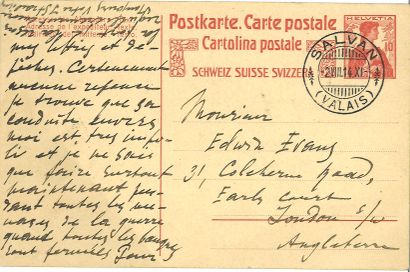 Postkarte. Carte postale
Cartolina postale
SCHWEIZ SUISSE SVIZZERA
HELVETIA
10
SALVAN
2.VIII.14.XI
(VALAIS)
mes lettres et de
fiches. Certainement
aucune réponse
je trouve que sa
conduite envers
moi est très impo-
li et je ne sais
que faire surtout
maintenant pen-
dant toutes les me-
naces de la guerre
quand toutes les banques
sont fermées Pour
Monsieur
Edwin Evans
31, Colcherne Road,
Earls Court
London S/W
Angleterre